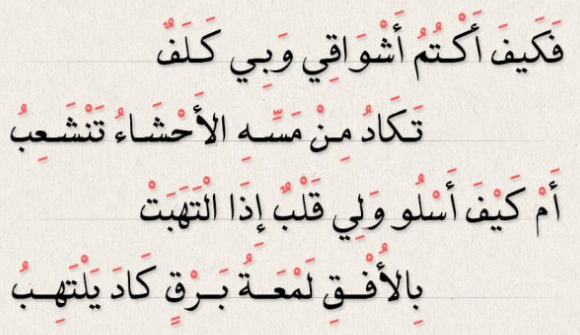 فَكَيفَ أَكْتُمُ أَشْوَاقِي وَبِي كَلَفٌ
تَكَادُ مِنْ مَسِّهِ الأَحْشَاءُ تَنْشَعِبُ
أَمْ كَيْفَ أَسْلُو وَلِي قَلْبٌ إِذَا الْتَهَبَتْ
بِالأُفْقِ لَمْعَةُ بَرْقٍ كَادَ يَلْتَهِبُ